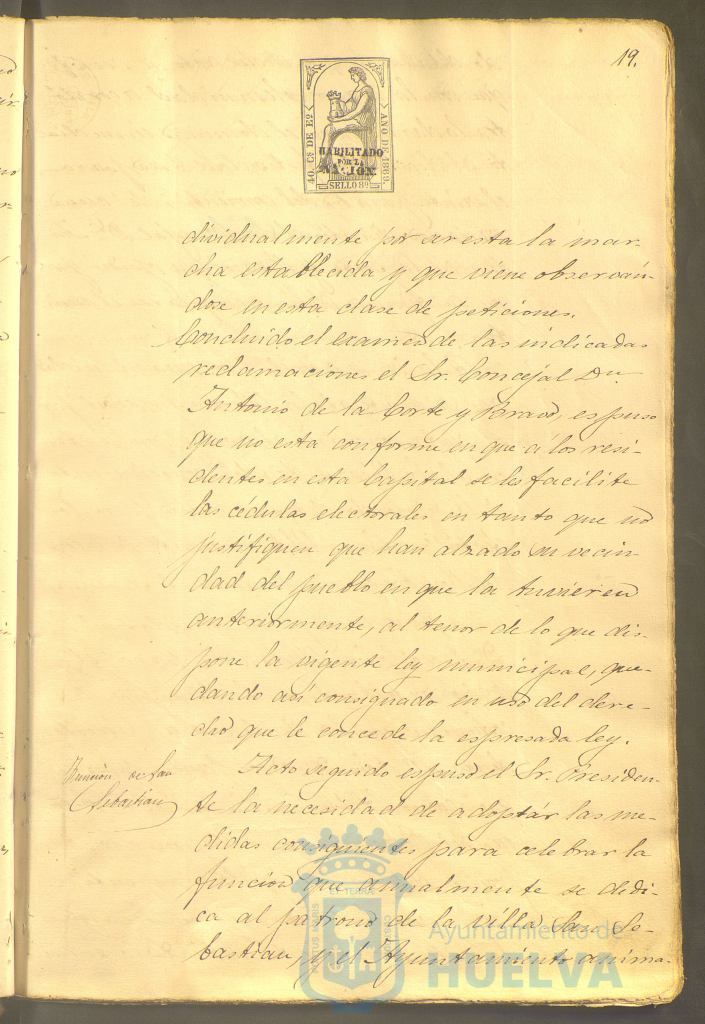 19.
40. Cs. DE Eo.
AÑO DE 1869.
HABILITADO
POR LA
NACION.
SELLO 8º
dividualmente por ser esta la mar-
cha establecida y que viene observán-
dose en esta clase de peticiones.
Concluido el examen de las indicadas
reclamaciones el Sr. Concejal Dn.
Antonio de la Corte y Bravo, espuso
que no está conforme en que á los resi-
dentes en esta Capital se les facilite
las cédulas electorales en tanto que no
justifiquen que han alzado su vecin-
dad del pueblo en que la tuvieren
anteriormente, al tenor de lo que dis-
pone la vigente ley municipal, que-
dando así consignado en uso del dere-
cho que le concede la espresada ley.
Función de San
Sebastian
Acto seguido espuso el Sr. Presiden-
te la necesidad de adoptár las me-
didas consiguientes para celebrar la
funcion que anualmente se dedi-
ca al patrono de la villa San Se-
bastian, y el Ayuntamiento anima-
Ayuntamiento de
HUELVA